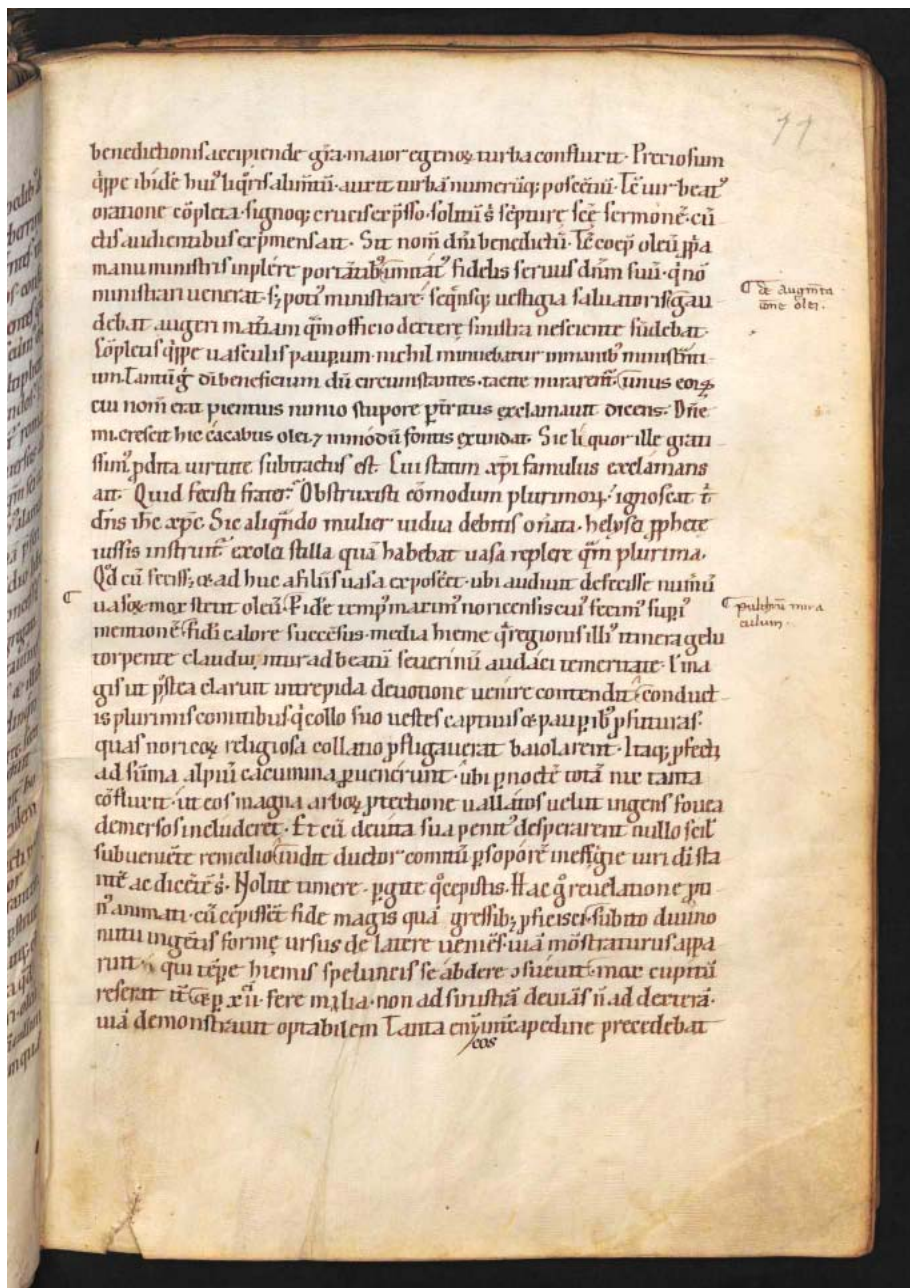 11
benedictionis accipiende gr̄a· maior egenoꝝ turba confluxit· Preciosum
q̇ppe ibidē huiꝰ liq̊ris alim̄tū· auxit turbā numerūq; poscētiū· Tē uir beatꝰ
oratione cōpleta· signoq; crucis exp̄sso· solitū s̄ sc̄pture sc̄ē sermonē· cū
ctis audientibus exp̄mens ait· Sit nom̄ dn̄i benedictū· Tē coep̄ oleū ꝓpa
manu ministris inplére portātibꝰ imitatꝰ fidelis seruus dn̄m suū· q̇ nō
ministrari uenerat· sꝫ potiꝰ ministrare· seq̄nsq; uestigia saluatoris gau
debat augeri mat̄iam q̄m officio dextere sinistra nesciente fūdebat·
Cōpletis q̇ppe uasculis paup̱um· nichil minuebatur in manibꝰ ministrāti
um· Tantū ḡ di beneficium dū circumstantes· tacite mirarent̄· unus eoꝝ
cui nom̄ erat pientius nimio stupore p̱tritus exclamauit dicens· Dn̄e
mi crescit hic cácabus olei ⁊ in módū fontis exundat· Sic liquor ille grati
ssimꝰ ꝓdita uirtute subtractus est· Cui statim xp̄i famulus exclámans
ait· Quid fecisti frater? Obstruxisti cōmodum plurimoꝝ· ignoscat t̄
dn̄s ih̄c xp̄c· Sic aliq̄ndo mulier uidua debitis on̄ata· helysei ꝓphete
iussis instruit̄ ex olei stilla quā habebat uasa replere q̄m plurima·
Q̊d cū fecissꝫ & ad huc a filiis uasa exposcēt· ubi audiuit defecisse num̄ū
uasoꝝ mox stetit oleū· P̱idē tempꝰ maximꝰ noricensis cuiꝰ fecimꝰ sup̱iꝰ
mentionē fidei calore succēsus· media hieme q̄ regionis illiꝰ itinera gelu
torpente claudūntur ad beatū seuerinū audáci temeritate· l' ma
gis ut p̊stea claruit intrepida deuotione uenire contendit conduct
is plurimis comitibus q̇ collo suo uestes captiuis & paup̱ibꝰ ꝓfuturas
quas noricoꝝ religiosa collatio ꝓfligauerat baiolarent· Itaq; ꝓfecti
ad sūma alpiū cacumina p̱uenerunt· ubi p̱ noctē totā nix tanta
cōfluxit· ut eos magna arboꝝ ꝓtectione uallatos uelut ingens fouea
demersos includeret· Et cū de uita sua penitꝰ desperarent nullo scil'
subueniēte remedio uidit ductor comitū p̱ soporē in effigie uiri di sta
ntē ac dicētē s̄· Nolite timere· p̱gite q̊ cepistis· Hac ḡ reuelatione ꝓti
nꝰ animati· cū cepissēt fide magis quā gressibꝫ ꝓficisci· súbito diuino
nutu ingētis formę ursus de latere ueniēs· uiā mōstraturus appa
ruit· qui tēp̱e hiemis speluncis se ábdere ɔsueuit· mox cupitū
reserat it̄ & p̱ xx̄ii· fere milia· non ad sinistrā deuiās n̄ ad dexterā·
uiā demonstrauit optabilem Tanta eni intercapedine precedebat
/eos
de augm̄ta
tione olei·
pulchrū mira
culum·